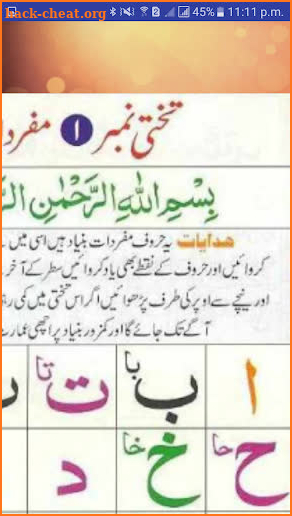 hack-cheat.org 2 45% 11:11 p.m.
تختی نمبر ۱ مفردا
بِسْمِ اللّٰهِ الرَّحْمٰنِ الرَّ
ھدایات یہ حروف مفردات بنیاد ہیں اسی میں
کروائیں اور حروف کے نقطے بھی یاد کروائیں سطر کے آخر
اور نیچے سے اوپر کی طرف پڑھوائیں اگر اس تختی میں کمی رہ
آگے تک جائے گا اور کمزور بنیاد پر اچھی عمارت
ا ب با ت تا
ح حا خ خا د